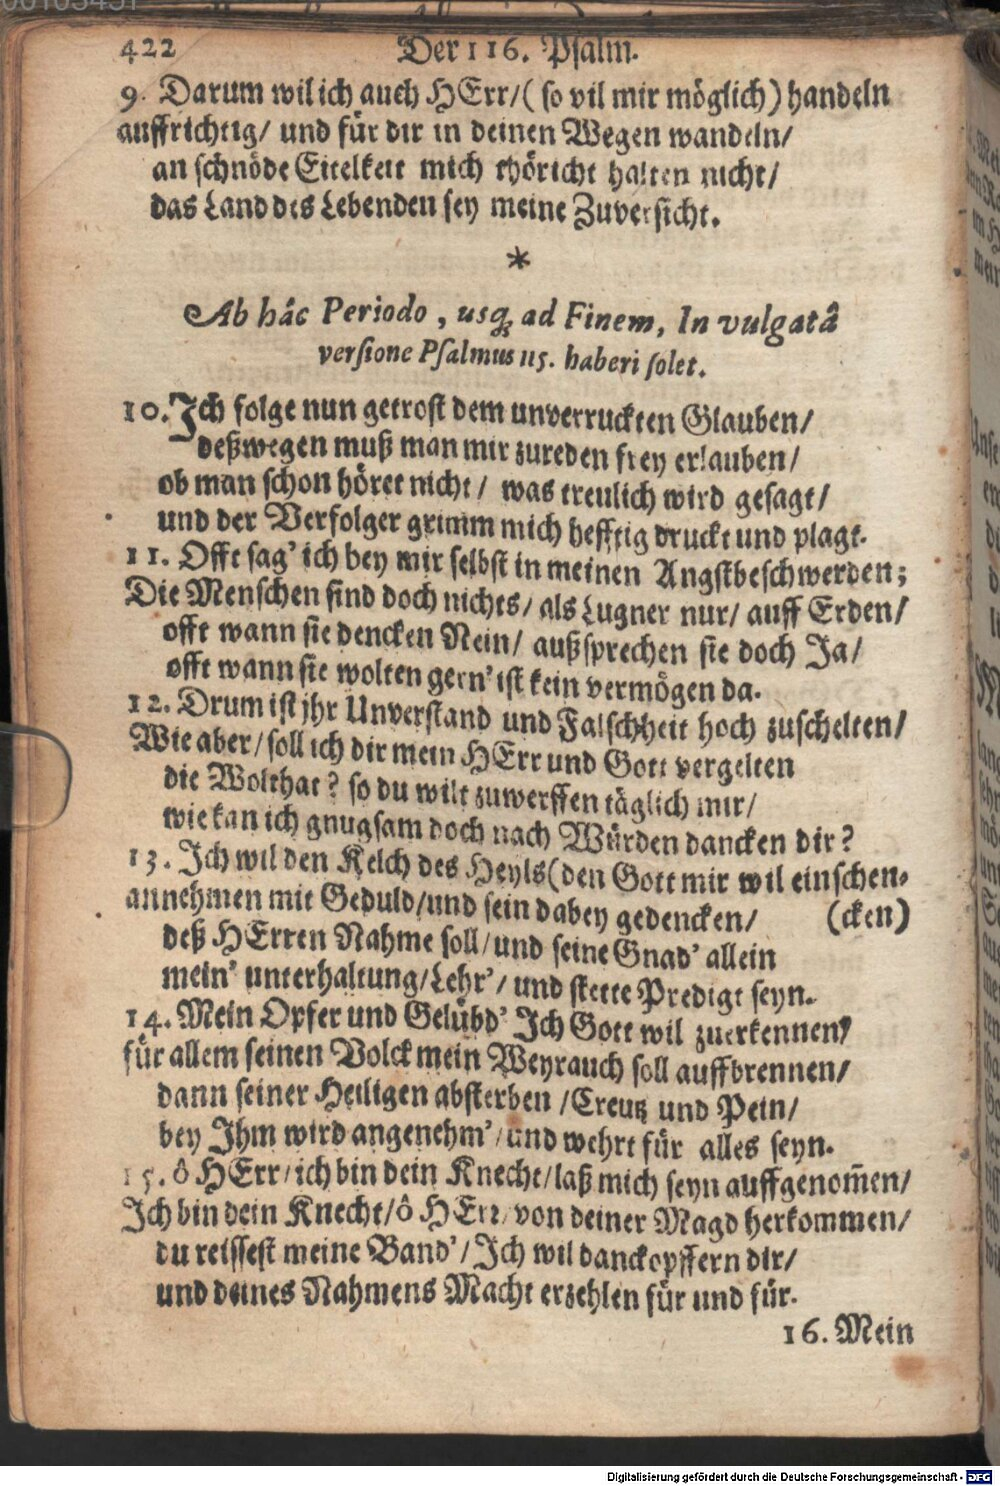 422 Der 116. Psalm.
9. Darum wil ich auch HErr/( so vil mir möglich) handeln
auffrichtig/ und für dir in deinen Wegen wandeln/
an schnöde Eitelkeit mich thöricht halten nicht/
das Land des Lebenden sey meine Zuversicht.
*
Ab hâc Periodo, usq; ad Finem, In vulgatâ
versione Psalmus 115. haberi solet.
10. Ich folge nun getrost dem unverruckten Glauben/
deßwegen muß man mir zureden frey erlauben/
ob man schon höret nicht/ was treulich wird gesagt/
und der Verfolger grimm mich hefftig druckt und plagt.
11. Offt sag' ich bey mir selbst in meinen Angstbeschwerden;
Die Menschen sind doch nichts/ als Lugner nur/ auff Erden/
offt wann sie dencken Nein/ außsprechen sie doch Ja/
offt wann sie wolten gern' ist kein vermögen da.
12. Drum ist jhr Unverstand und Falschheit hoch zuschelten/
Wie aber/ soll ich dir mein HErr und Gott vergelten
die Wolthat? so du wilt zuwerffen täglich mir/
wie kan ich gnugsam doch nach Würden dancken dir?
13. Ich wil den Kelch des Heyls(den Gott mir wil einschen-
annehmen mit Geduld/und sein dabey gedencken/ (cken)
deß HErren Nahme soll/und seine Gnad' allein
mein' unterhaltung/Lehr'/ und stette Predigt seyn.
14. Mein Opfer und Gelübd' Ich Gott wil zuerkennen/
für allem seinen Volck mein Weyrauch soll auffbrennen/
dann seiner Heiligen absterben /Creutz und Pein/
bey Ihm wird angenehm'/und wehrt für alles seyn.
15. ô HErr/ich bin dein Knecht/laß mich seyn auffgenom̃en/
Ich bin dein Knecht/ô HErr/von deiner Magd herkommen/
du reissest meine Band'/ Ich wil danckopffern dir/
und deines Nahmens Macht erzehlen für und für.
16. Mein
Digitalisierung gefördert durch die Deutsche Forschungsgemeinschaft - DFG